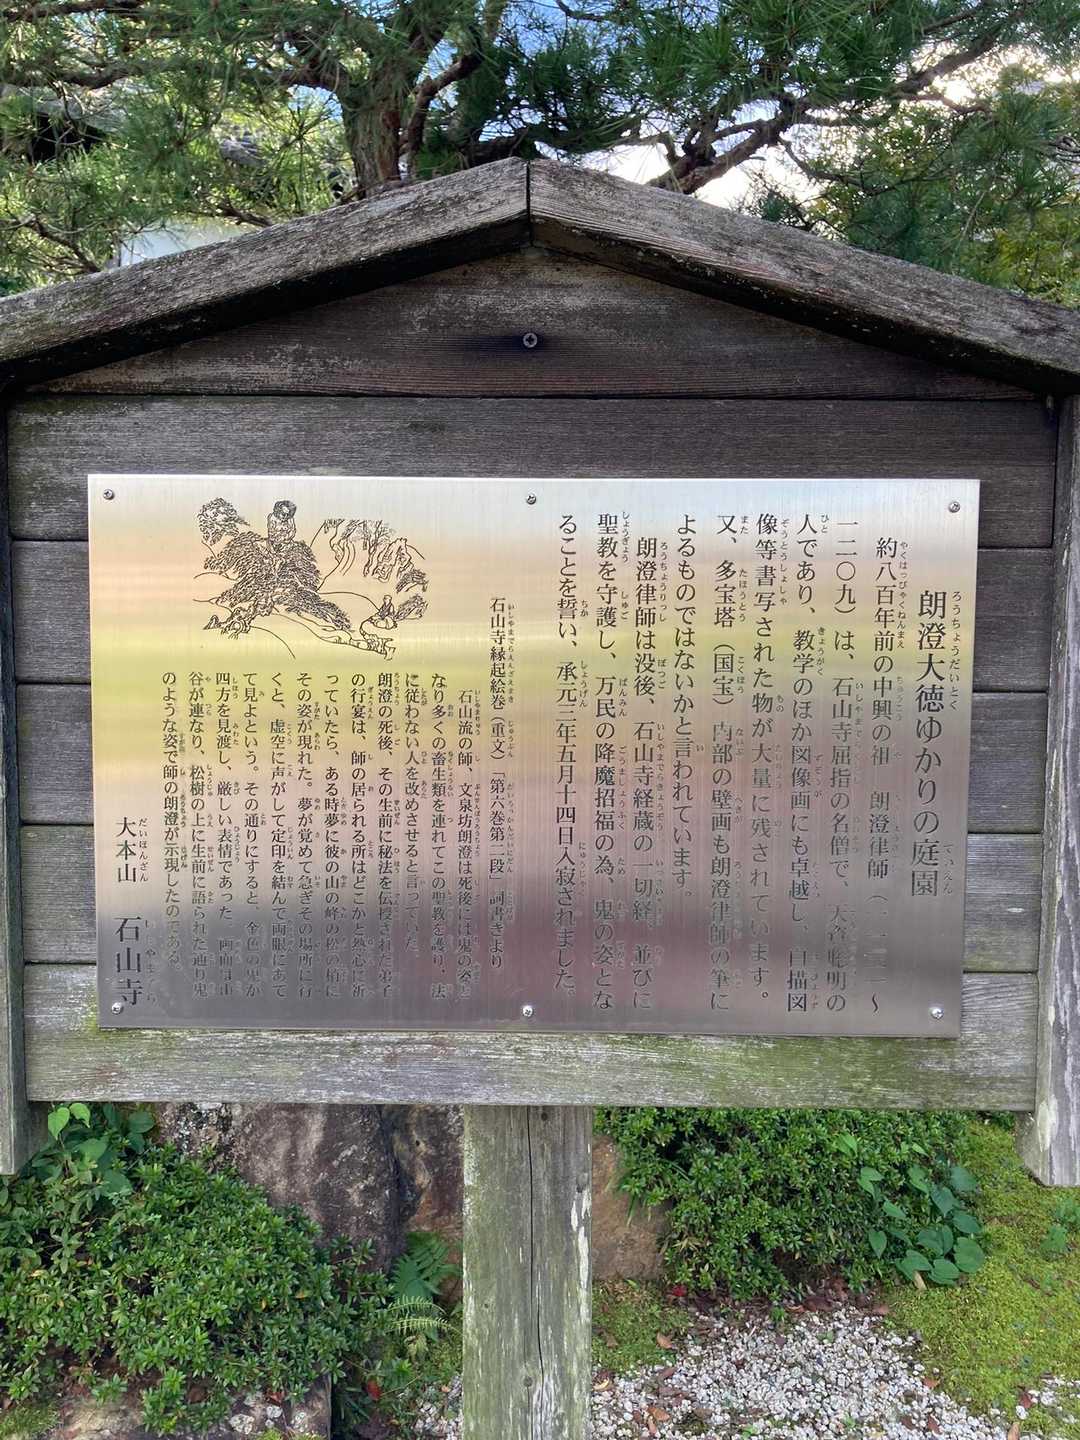 朗澄大徳ゆかりの庭園
約八百年前の中興の祖 朗澄律師（一一三一〜
一二〇九）は、石山寺屈指の名僧で、天資聡明の
人であり、教学のほか図像画にも卓越し、自描図
像等書写された物が大量に残されています。
又、多宝塔（国宝）内部の壁画も朗澄律師の筆に
よるものではないかと言われています。
朗澄律師は没後、石山寺経蔵の一切経、並びに
聖教を守護し、万民の降魔招福の為、鬼の姿とな
ることを誓い、承元三年五月十四日入寂されました。
石山寺縁起絵巻（重文）「第六巻第二段」詞書きより
石山流の師、文泉坊朗澄は死後には鬼の姿と
なり多くの畜生類を連れてこの聖教を護り、法
に従わない人を改めさせると言っていた。
朗澄の死後、その生前に秘法を伝授された弟子
の行宴は、師の居られる所はどこかと熱心に祈
っていたら、ある時夢に彼の山の峰の松の梢に
その姿が現れた。夢が覚めて急ぎその場所に行
くと、虚空に声がして定印を結んで両眼にあて
て見よという。その通りにすると、金色の鬼が
四方を見渡し、厳しい表情であった。画面は山
谷が連なり、松樹の上に生前に語られた通り鬼
のような姿で師の朗澄が示現したのである。
大本山 石山寺